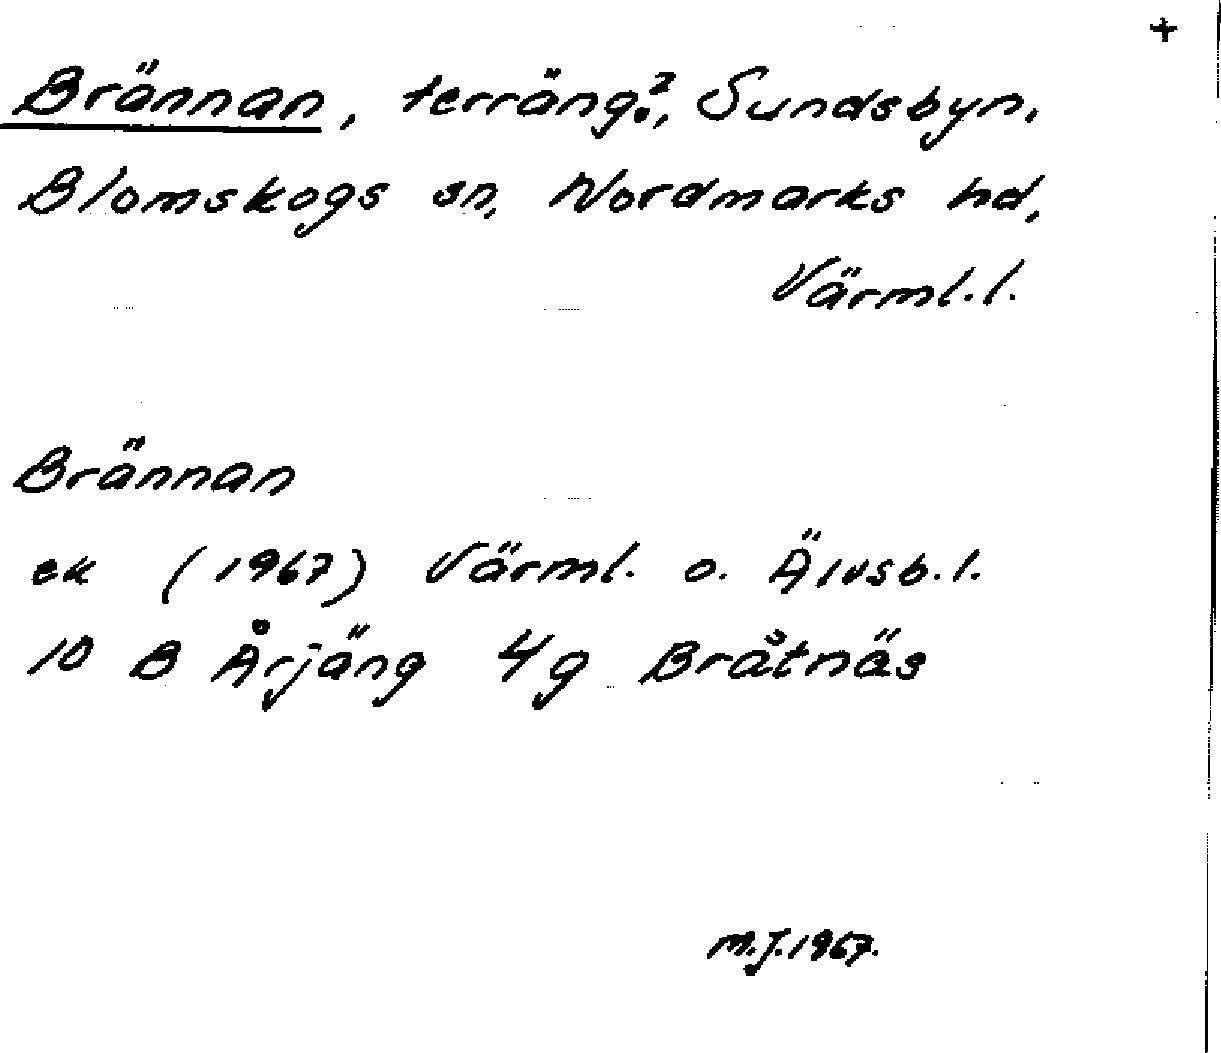 +
Brännan, terräng?, Sundsbyn,
Blomskogs sn, Nordmarks hd,
Värml.l.
Brännan
ek (1967) Värml. o. Älvsb.l.
10 B Årjäng 4g Bråtnäs
M.J.1967.